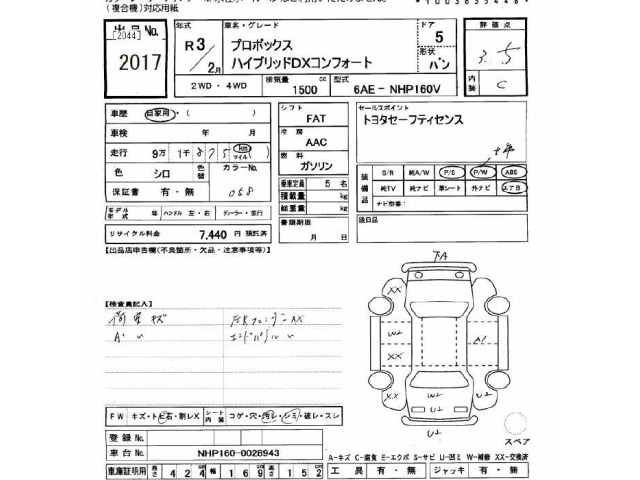 (複合機)対応用紙
出品No.
[2044]
2017
年式
R 3/2月
車名・グレード
プロボックス
ハイブリッドDXコンフォート
ドア
5
形状
バン
評価点
3.5
内装
C
2WD・4WD
排気量
1500 cc
型式
6AE - NHP160V
車歴 自家用・( )
車検 年 月
走行 9万 1千 875 km マイル
色 シロ 色替 カラーNo.
保証書 有・無 058
モデル年式 年 ハンドル 左・右 ディーラー・並行
リサイクル料金 7,440 円 預託済
シフト
FAT
冷房
AAC
燃料
ガソリン
乗車定員 5 名
積載量 kg
総重量 kg
書類期限
月 日
セールスポイント
トヨタセーフティセンス
装備品
S/R 純A/W P/S P/W ABS
純TV 純ナビ 革シート 外ナビ エアB
ナビ型番:
後日品
【出品店申告欄(不良箇所・欠品・注意事項等)】
【検査員記入】
荷室キズ
A〃 〃
下A
XX
XX
W2
XX
A1
XX
W2
U2 U2
U2
スペア
FW キズ・トビ石・割レX シート内装 コゲ・穴・汚レ・シミ・破レ・スレ
登録No.
車台No. NHP160-0028943
A-キズ C-腐食 E-エクボ S-サビ U-凹ミ W-補修 XX-交換済
車庫証明用 長さ 424 幅 169 高さ 152
工具 有・無 ジャッキ 有・無